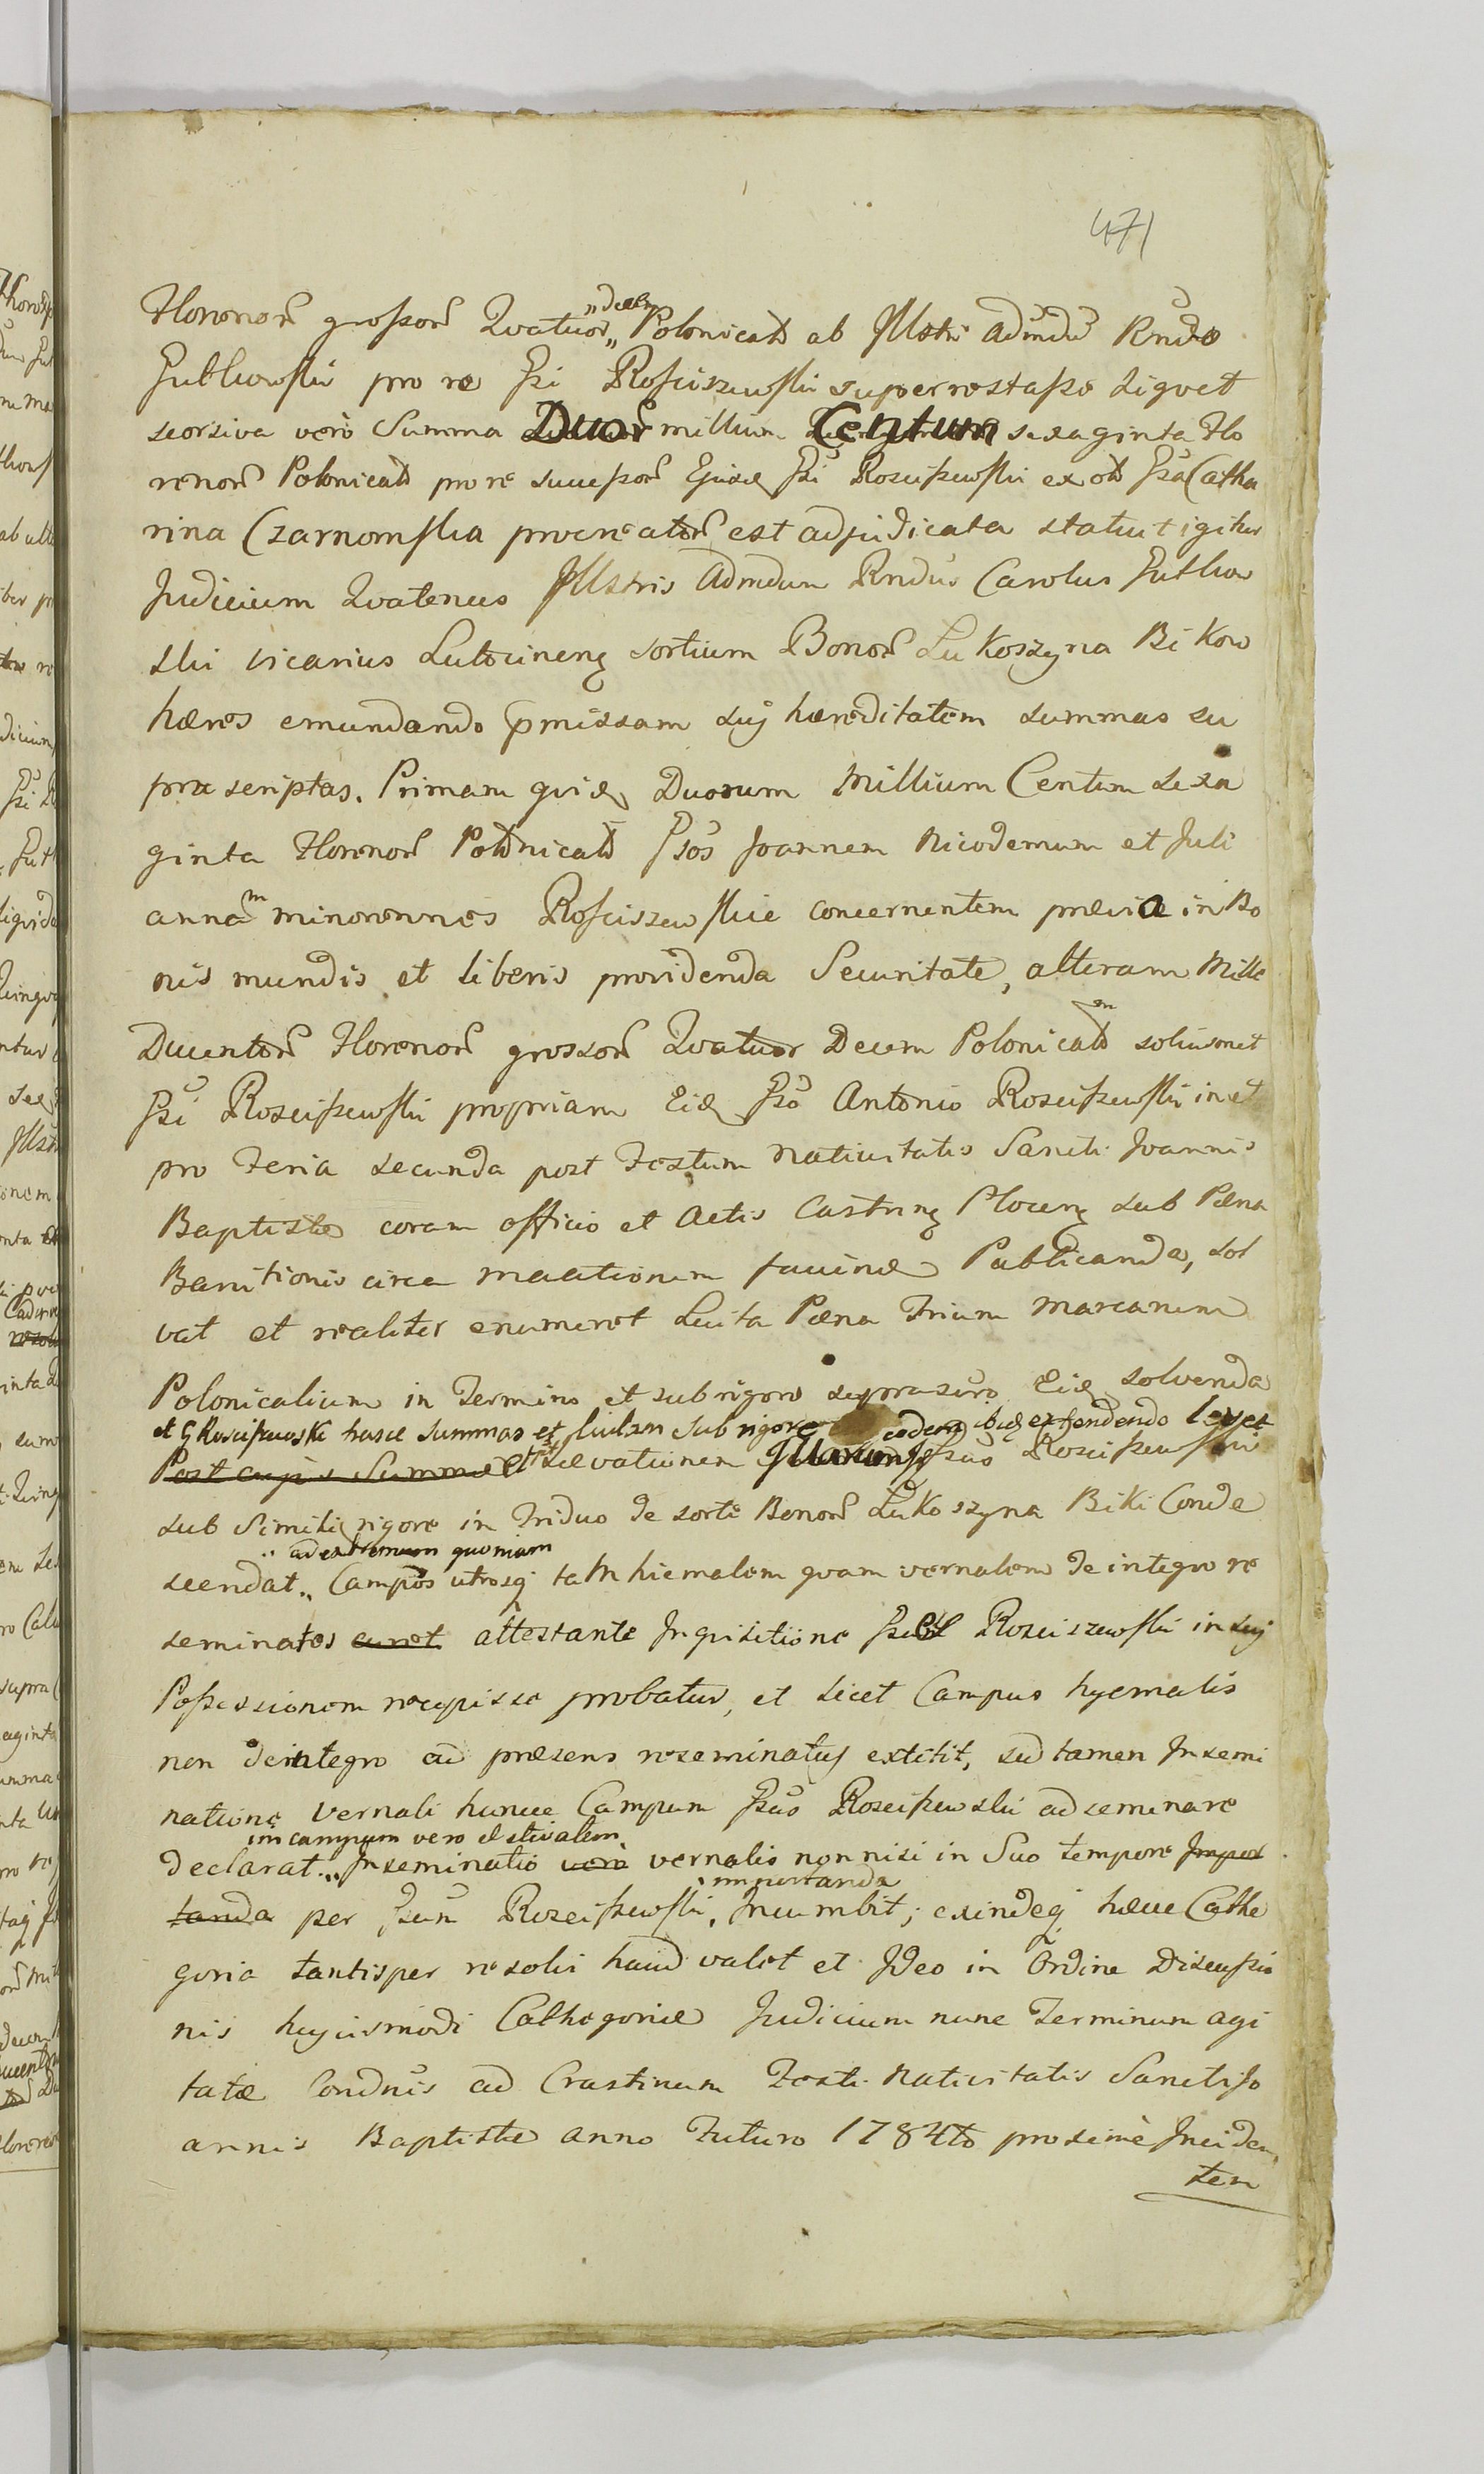 471
Florenor grossor Qvatuor „decem Polonical ab Illstri Admdu Rndo
Gutkowski pro re Gsi Rosciszewski superrestasse Liqvet
seorsiva verò Summa Duor millium Centum sexaginta Flo
renor Polonical pro re sucessor Ejusd Gsi Roscissewski ex olt Gsa Catha
rina Czarnomska procreator est adjudicata statuit igitur
Judicium Qvatenus Illstris Admdum Rndus Carolus Gutkow
ski vicarius Lutocinens sortium Bonor Lukoszyna Bikow
hæres emundando pmissam suj hæreditatem summas su
præscriptas. Primam qvid Duorum Millium Centum sexa
ginta Florenor Polonical Gsos Joannem Nicodemum et Juli
annam minorennes Rosciszewskie concernentem prævia in Bo
nis mundis et liberis providenda Securitate, alteram Mille
Ducentor Florenor grossor Qvatuor Decem Polonicalem soliusmet
Gsi Roscissewski propriam Eid Gso Antonio Roscissewski in et
pro Feria secunda post Festum Nativitatis Sancti Joannis
Baptistæ coram officio et Actis Castrens Plocens sub Pæna
Banitionis circa Publicanda, sol
vat et realiter enumeret Luita Pæna Trium Marcarum
Polonicalium in Termino et sub rigore Eid solvenda
et G Roscissewski hasce summas et sub rigore eodem ibid
Post Summæ et levationem Gsus Roscissewski
sub Simili rigore in Triduo de sorte Bonor Lukoszyna Biki Conde
ad extremum quoniam
scendat„ Campos utrosq tam hiemalem qvam vernalem de integro re
seminatos attestante Inqvisitione Gsus Rosciszewski in suj
Possessionem recepisse probatur, et licet Campus hyemalis
non deintegro ad præsens reseminatus extitit, sed tamen Insemi
natione vernali huncce Campum Gsus Roscissewski adseminare
in campum vero estivalem
declarat„ Inseminatio vero vernalis nonnisi in Suo tempore Impor
importanda
tanda per Gsum Roscissewski, Incumbit; exindeq hæcce Cathe
goria tantisper resolvi haud valet et Ideo in Ordine Discussio
nis hujusmodi Cathegoriæ Judicium nunc Terminum agi
tatæ Condnis ad Crastinum Festi Nativitatis Sancti Jo
annis Baptistæ Anno Futuro 1784to proximè Inciden
tem